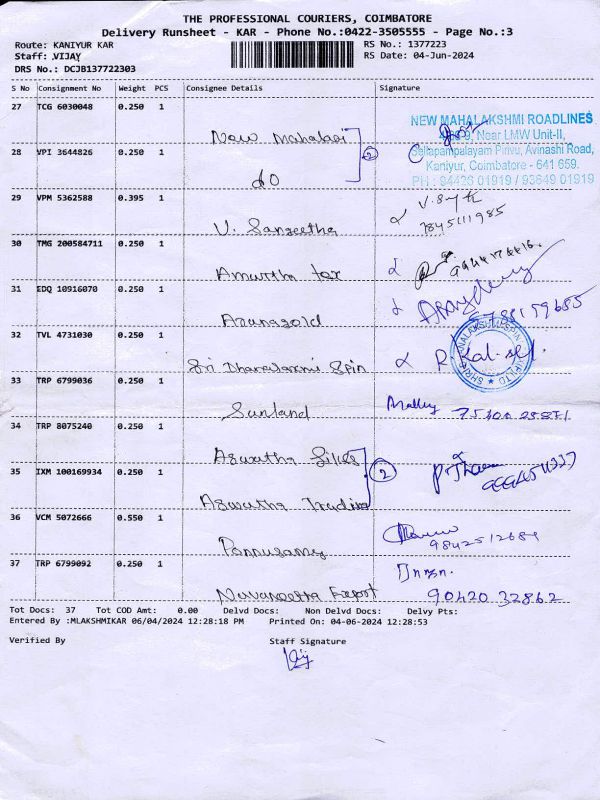 THE PROFESSIONAL COURIERS, COIMBATORE
Delivery Runsheet - KAR - Phone No.:0422-3505555 - Page No.:3
Route: KANIYUR KAR
RS No.: 1377223
Staff: VIJAY
RS Date: 04-Jun-2024
DRS No.: DCJB137722303
S No Consignment No Weight PCS Consignee Details Signature
27 TCG 6030048 0.250 1
New Mahalaxi
NEW MAHALAKSHMI ROADLINES
Near LMW Unit-II,
Pirivu, Avinashi Road,
Kaniyur, Coimbatore - 641 659.
PH : 94436 01919 / 93649 01919
28 VPI 3644826 0.250 1
do
2
29 VPM 5362588 0.395 1
V. Sangeetha
7845111985
30 TMG 200584711 0.250 1
Amurtha tex
31 EDQ 10916070 0.250 1
32 TVL 4731030 0.250 1
Sri Dhanalaxmi Spin
33 TRP 6799036 0.250 1
Sunland
34 TRP 8075240 0.250 1
Aswatha Silks
2
35 IXM 100169934 0.250 1
Aswatha Trading
36 VCM 5072666 0.550 1
Ponnusamy
9842512684
37 TRP 6799092 0.250 1
Navaneetha Export
90420 32862
Tot Docs: 37 Tot COD Amt: 0.00 Delvd Docs: Non Delvd Docs: Delvy Pts:
Entered By :MLAKSHMIKAR 06/04/2024 12:28:18 PM Printed On: 04-06-2024 12:28:53
Verified By
Staff Signature